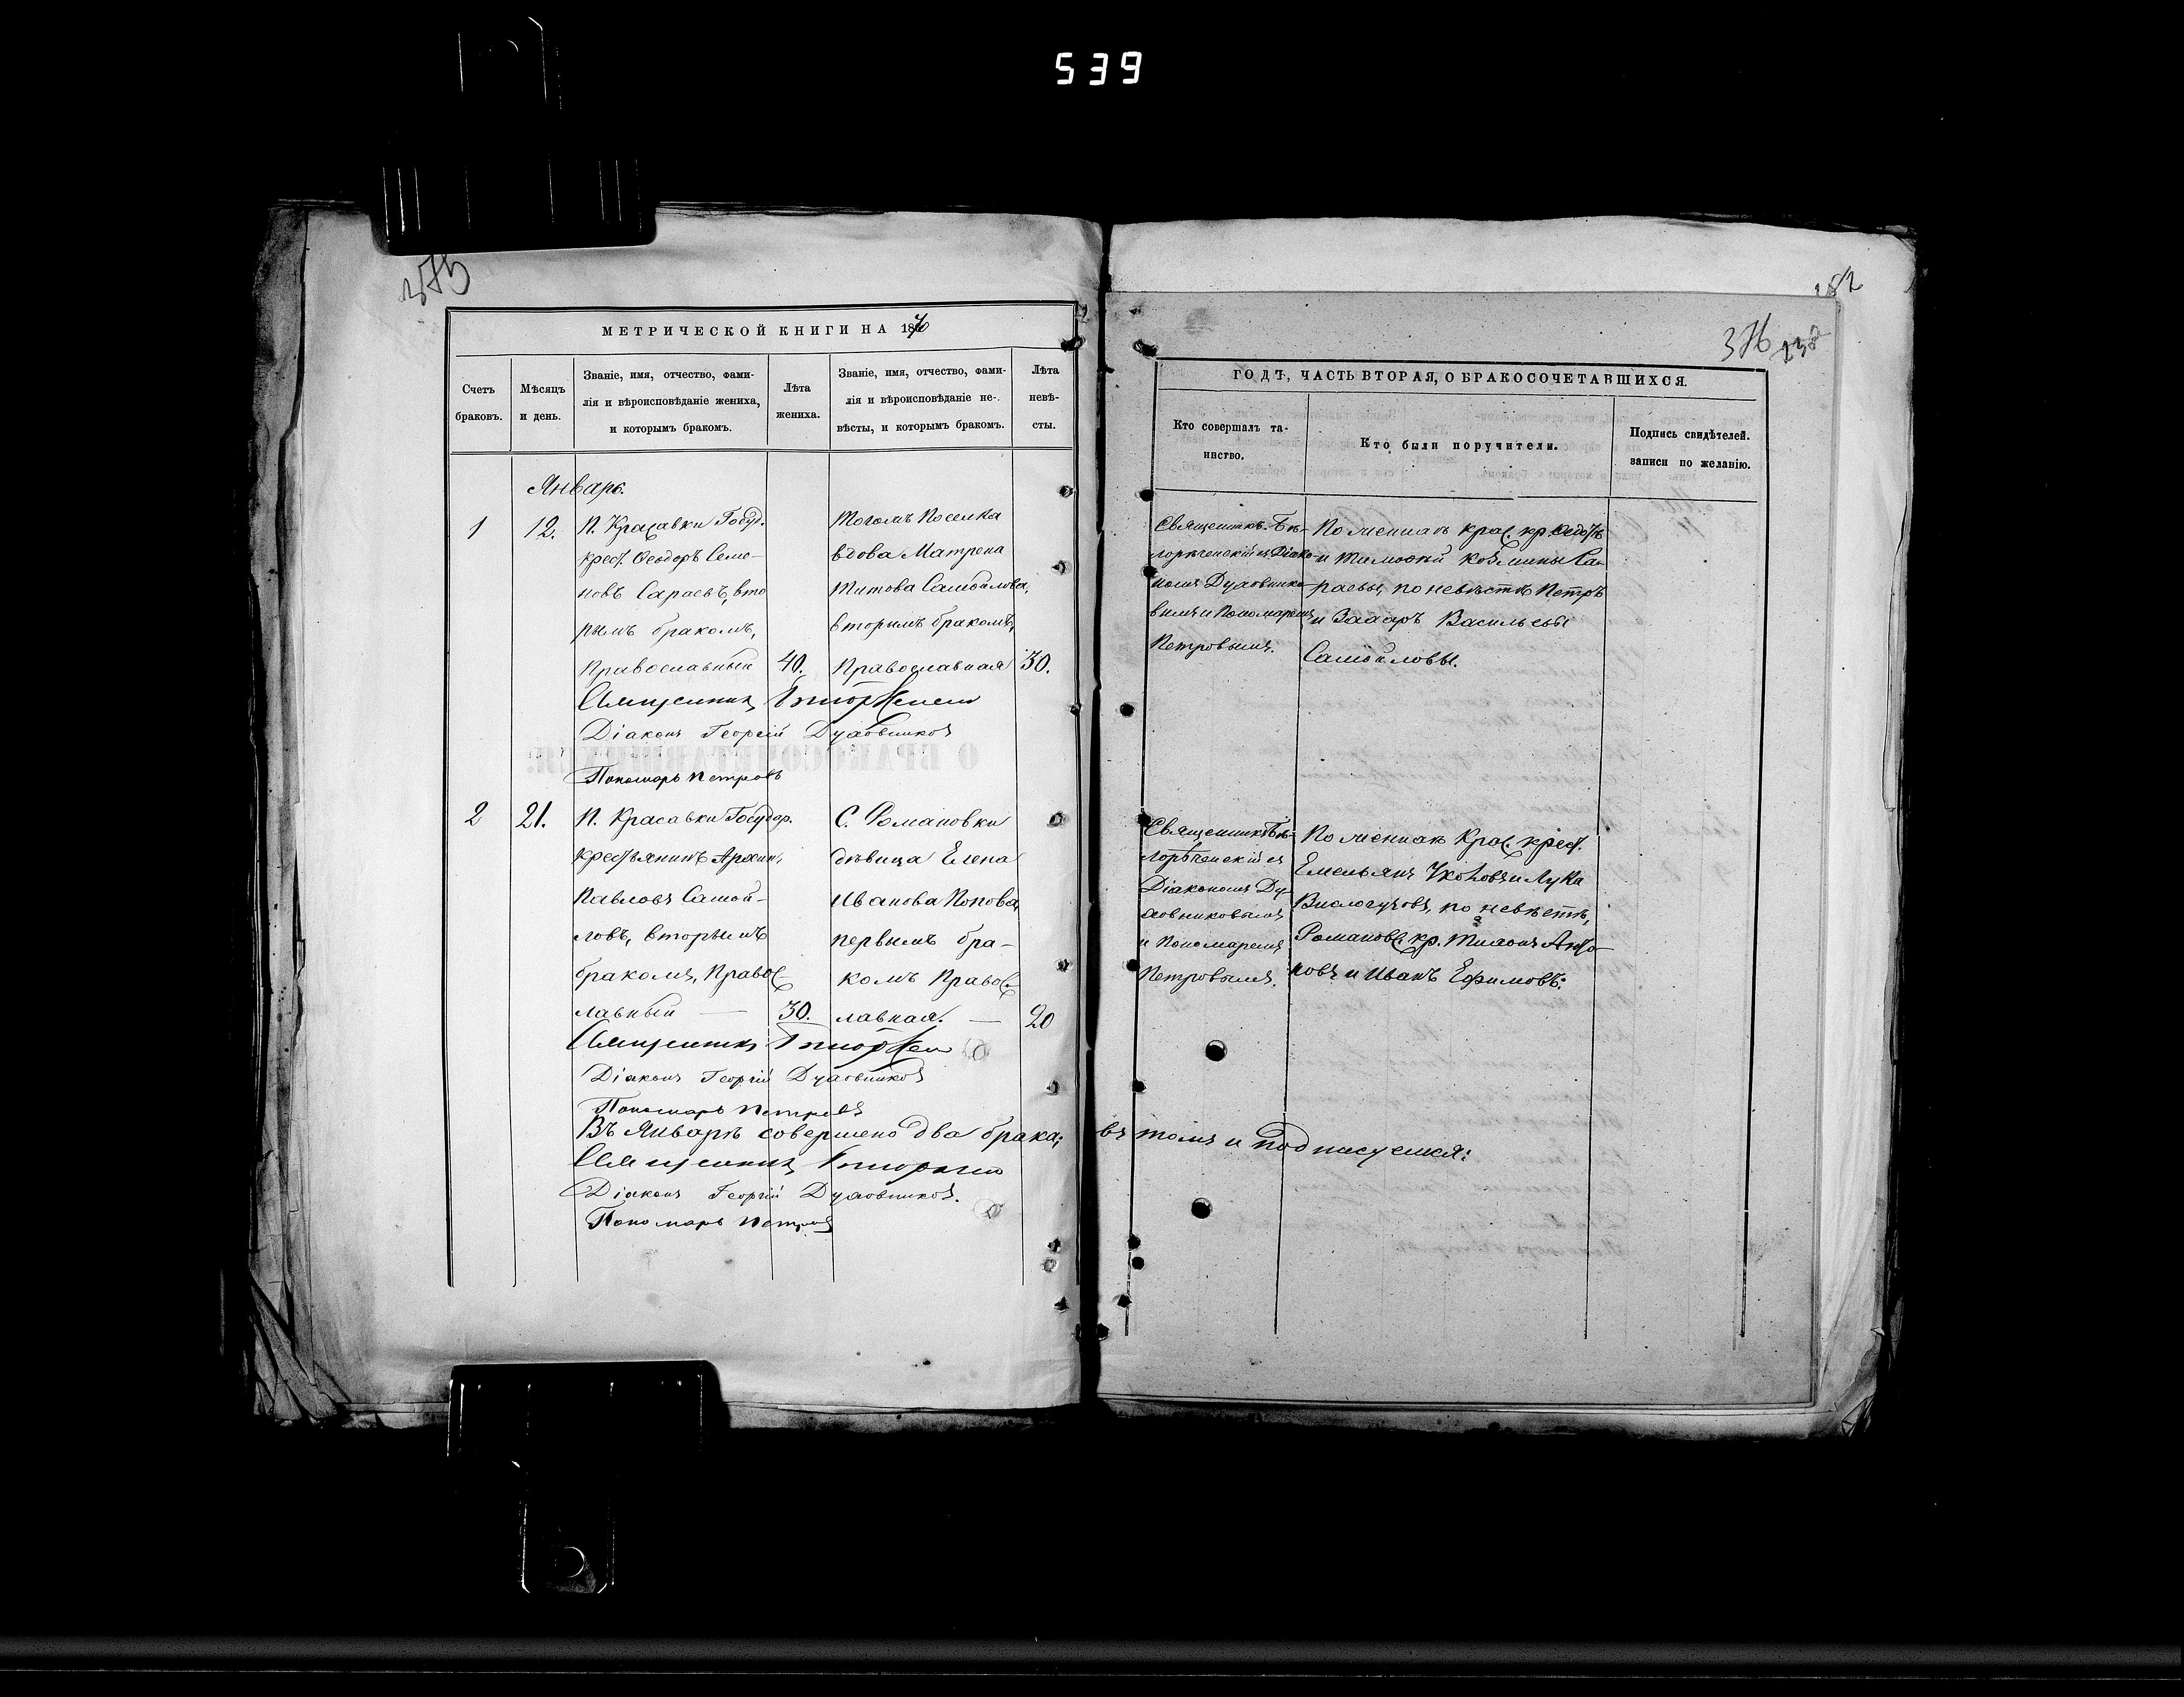 539
375
МЕТРИЧЕСКОЙ КНИГИ НА 1870
Счетъ браковъ.
Мѣсяцъ и день.
Званіе, имя, отчество, фами-
лія и вѣроисповѣданіе жениха,
и которымъ бракомъ.
Лѣта жениха.
Званіе, имя, отчество, фами-
лія и вѣроисповѣданіе не-
вѣсты, и которымъ бракомъ.
Лѣта
невѣ-
сты.
Январь.
1
12.
П. Красавки Госуд.
крест. Ѳеодоръ Семе-
новъ Сараевъ, вто
рымъ бракомъ,
Православный
40.
Тогожъ Поселка
вдова Матрена
Титова Самойлова,
вторымъ бракомъ,
Православная
30.
Священникъ
Діаконъ Георгій Духовниковъ
Пономарь Петровъ
2
21.
П. Красавки Государ.
крестьянинъ Архип.
Павловъ Самой-
ловъ, вторымъ
бракомъ, Правос-
лавный
30.
С. Романовки
дѣвица Елена
Иванова Попова,
первымъ бра-
комъ Правос-
лавная.
20
Священникъ
Діаконъ Георгій Духовниковъ
Пономарь Петровъ
Въ Январѣ совершено два брака;
Священникъ
Діаконъ Георгій Духовниковъ.
Пономарь Петровъ
182
376
238
ГОДЪ, ЧАСТЬ ВТОРАЯ, О БРАКОСОЧЕТАВШИХСЯ.
Кто совершалъ та-
инство.
Кто были поручители.
Подпись свидѣтелей.
записи по желанію.
Священникъ Бѣ-
лорѣченскій съ Діако-
номъ Духовнико-
вымъ и Пономаремъ
Петровымъ.
По женихѣ Крас. кр. Ѳедотъ
и Тимоѳей Козмины Са-
раевы, по невѣстѣ Петръ
и Захаръ Васильевы
Самойловы.
Священникъ Бѣ-
лорѣченскій съ
Діакономъ Ду-
ховниковымъ
и Пономаремъ
Петровымъ.
По женихѣ Крас. крест.
Емельянъ и Лука
по невѣстѣ,
Романов. кр. Тихонъ Анто-
новъ и Иванъ Ефимовъ:
въ томъ и подписуемся: